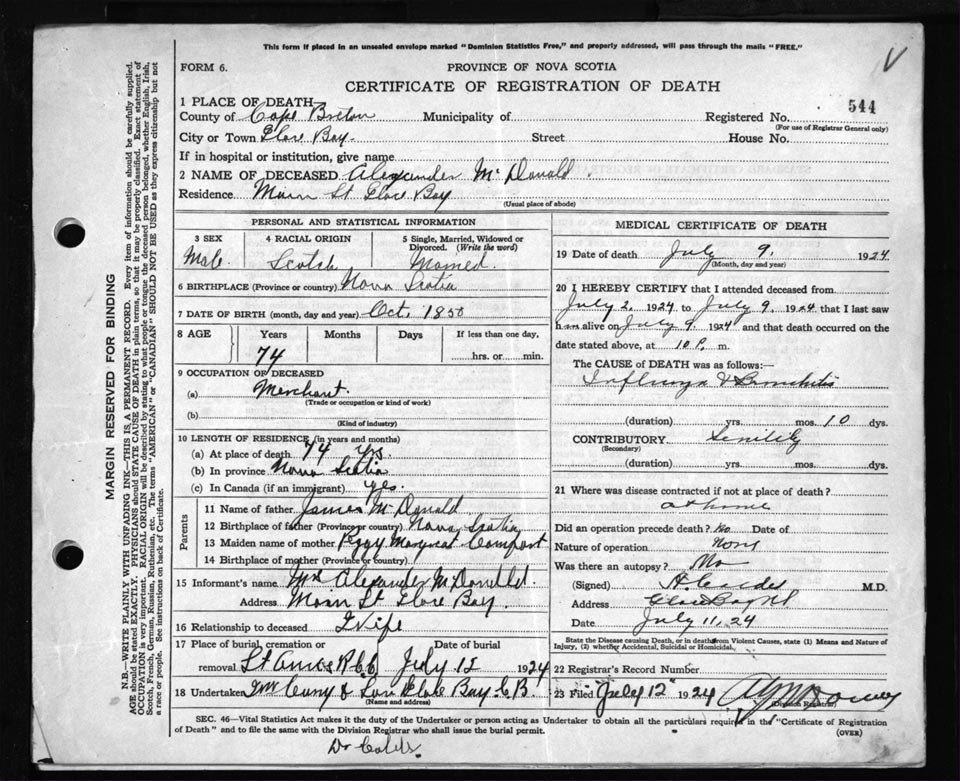 This form if placed in an unsealed envelope marked "Dominion Statistics Free," and properly addressed, will pass through the mails "FREE."
V
FORM 6.
PROVINCE OF NOVA SCOTIA
CERTIFICATE OF REGISTRATION OF DEATH
544
1 PLACE OF DEATH
County of Cape Breton Municipality of Registered No.
(For use of Registrar General only)
City or Town Glace Bay. Street House No.
If in hospital or institution, give name
2 NAME OF DECEASED Alexander McDonald.
Residence Main St Glace Bay
(Usual place of abode)
PERSONAL AND STATISTICAL INFORMATION
3 SEX
Male
4 RACIAL ORIGIN
Scotch
5 Single, Married, Widowed or
Divorced. (Write the word)
6 BIRTHPLACE (Province or country) Nova Scotia
7 DATE OF BIRTH (month, day and year) Oct, 1850
8 AGE
Years
74
Months
Days
If less than one day,
hrs. or min.
9 OCCUPATION OF DECEASED
(a) Merchant.
(Trade or occupation or kind of work)
(b)
(Kind of industry)
10 LENGTH OF RESIDENCE (in years and months)
(a) At place of death 74 yrs.
(b) In province Nova Scotia
(c) In Canada (if an immigrant) yes.
Parents
11 Name of father James McDonald
12 Birthplace of father (Province or country) Nova Scotia
13 Maiden name of mother Peggy Margreat
14 Birthplace of mother (Province or country)
15 Informant's name Mrs Alexander McDonald.
Address Main St Glace Bay.
16 Relationship to deceased Wife
17 Place of burial, cremation or Date of burial
removal St Anns July 12 1924
18 Undertaker & Son Glace Bay C.B.
(Name and address)
MEDICAL CERTIFICATE OF DEATH
19 Date of death July 9, 1924
(Month, day and year)
20 I HEREBY CERTIFY that I attended deceased from
July 2, 1924 to July 9, 1924 that I last saw
him alive on July 9 1924 and that death occurred on
date stated above, at 10 P. m.
The CAUSE of DEATH was as follows:—
Influenza & Bronchitis
(duration) yrs. mos. 10 dys.
CONTRIBUTORY Senility
(Secondary)
(duration) yrs. mos. dys.
21 Where was disease contracted if not at place of death?
at home
Did an operation precede death? No Date of
Nature of operation None
Was there an autopsy? No
(Signed) M.D.
Address Glace Bay NS
Date July 11, 24
State the Disease causing Death, or in death from Violent Causes, state (1) Means and Nature of
Injury, (2) whether Accidental, Suicidal or Homicidal.
22 Registrar's Record Number
23 Filed July 12 1924
(Division Registrar)
SEC. 46—Vital Statistics Act makes it the duty of the Undertaker or person acting as Undertaker to obtain all the particulars required in the "Certificate of Registration
of Death" and to file the same with the Division Registrar who shall issue the burial permit.
(OVER)
Dr
MARGIN RESERVED FOR BINDING
N.B.—WRITE PLAINLY WITH UNFADING INK—THIS IS A PERMANENT RECORD. Every item of information should be carefully supplied.
AGE should be stated EXACTLY. PHYSICIANS should STATE CAUSE OF DEATH in plain terms, so that it may be properly classified. Exact statement of
OCCUPATION is very important. RACIAL ORIGIN will be described by stating to what people or tongue the deceased person belonged, whether English, Irish,
Scotch, French, German, Russian, Ruthenian, etc. The terms "AMERICAN" or "CANADIAN" SHOULD NOT BE USED as they express citizenship but not
a race or people. See instructions on back of Certificate.